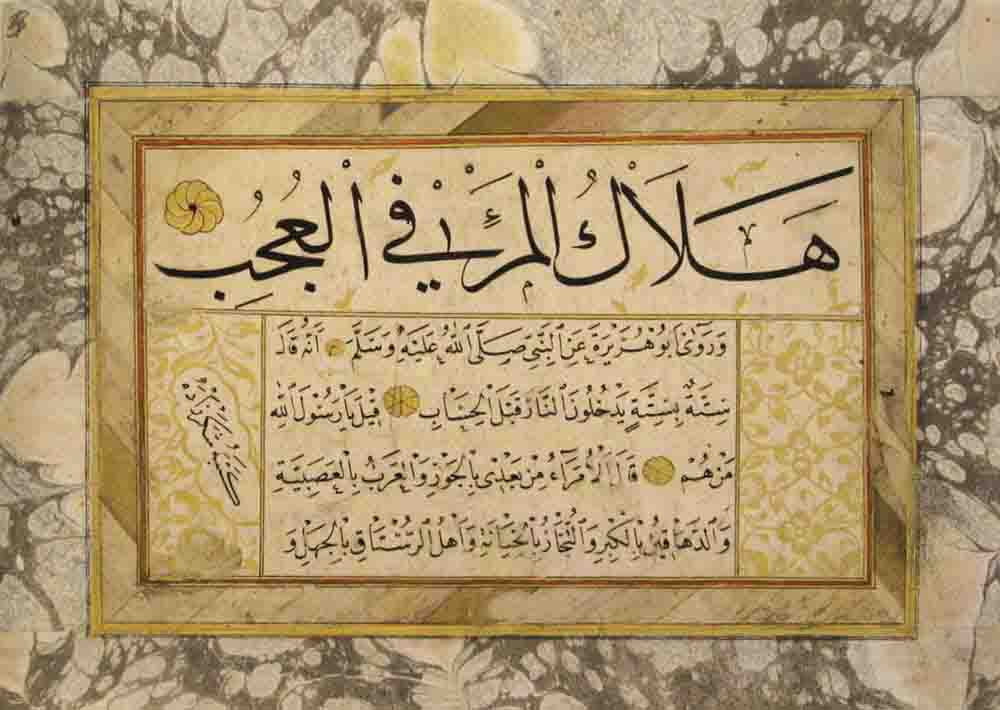 هَلَاكُ الْمَرْئِ فِي الْعُجُبِ
وَرَوٰى اَبُو هُرَيْرَةَ عَنِ النَّبِيِّ صَلَّى اللهُ عَلَيْهِ وَسَلَّمَ اَنَّهُ قَالَ
سِتَّةٌ بِسِتَّةٍ يَدْخُلُونَ النَّارَ قَبْلَ الْحِسَابِ قِيلَ يَا رَسُولَ اللهِ
مَنْ هُمْ قَالَ الْاُمَرَاءُ مِنْ بَعْدِي بِالْجَوْرِ وَالْعَرَبُ بِالْعَصَبِيَّةِ
وَالدَّهَاقِينُ بِالْكِبْرِ وَالتُّجَّارُ بِالْخِيَانَةِ وَاَهْلُ الرُّسْتَاقِ بِالْجَهْلِ وَ
كتبه شكرزاده